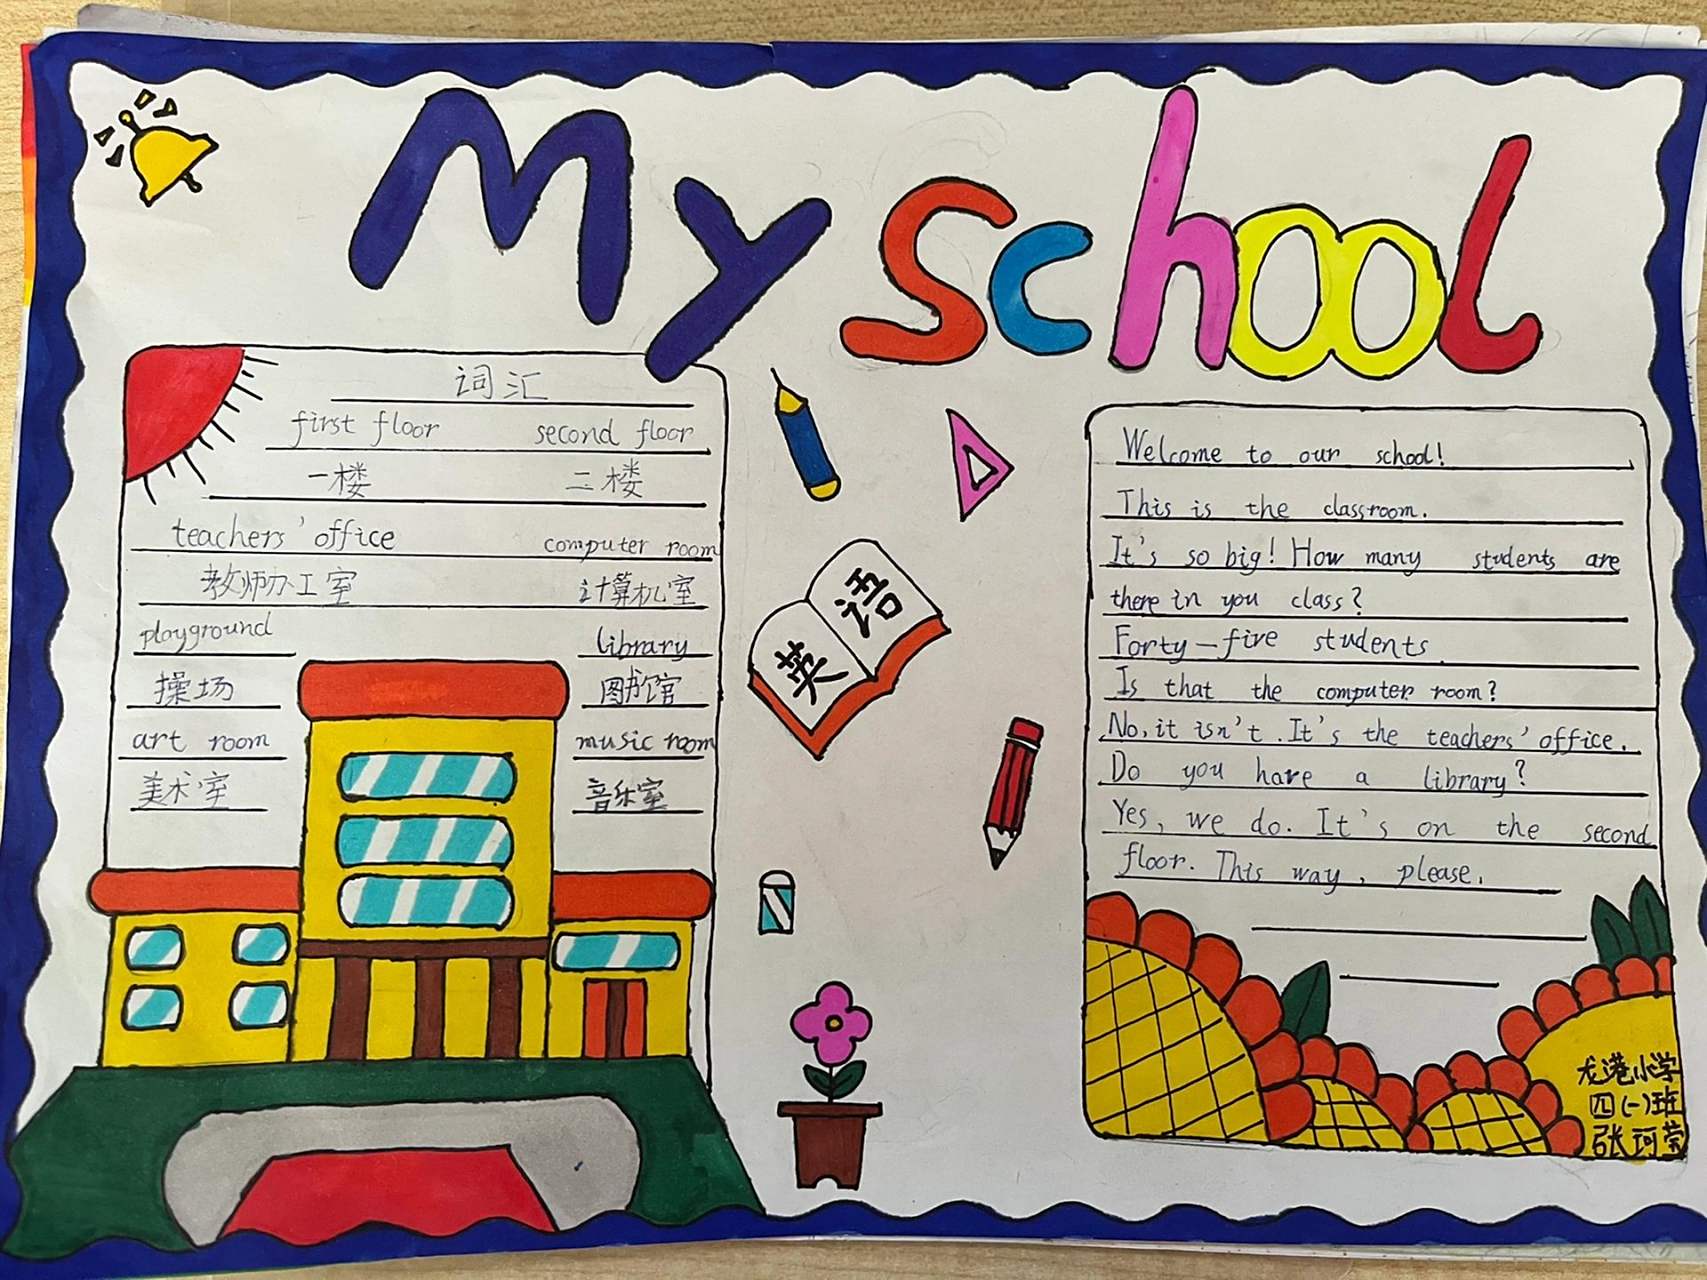 My school
词汇
first floor second floor
一楼 二楼
teachers' office computer room
教师办工室 计算机室
playground library
操场 图书馆
art room music room
美术室 音乐室
英语
Welcome to our school!
This is the classroom.
It's so big! How many students are
there in you class?
Forty-five students.
Is that the computer room?
No, it isn't. It's the teachers' office.
Do you have a library?
Yes, we do. It's on the second
floor. This way, please.
龙港小学
四(一)班
张珂萦